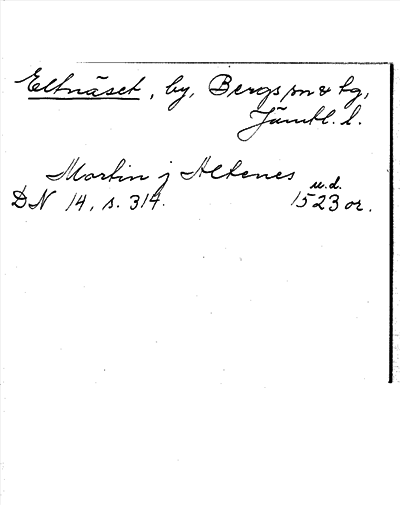 Eltnäset, by, Bergs sn & tg,
Jämtl. l.
Martin j Altenes u.d.
DN 14, s. 314. 1523 or.